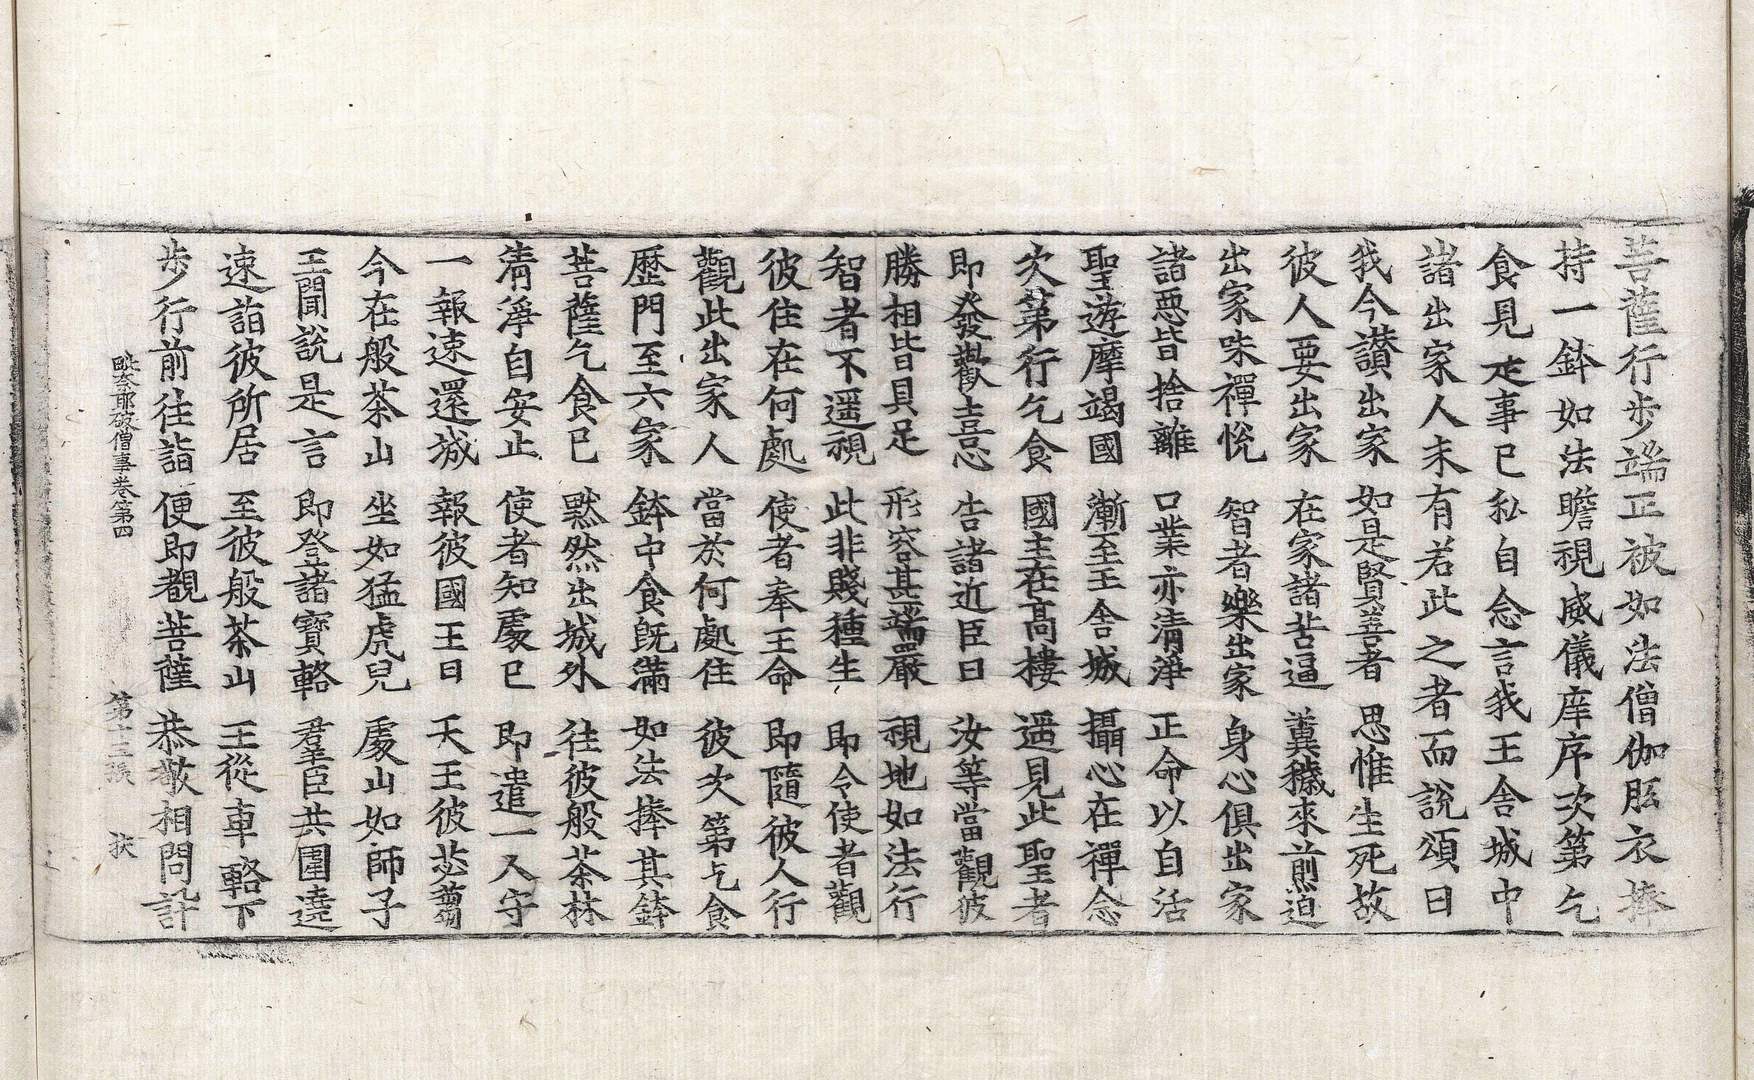 菩薩行步端正被如法僧伽胝衣捧
持一鉢如法瞻視威儀庠序次第乞
食見是事已私自念言我王舍城中
諸出家人未有若此之者而說頌曰
我今讚出家 如是賢善者 思惟生死故
彼人要出家 在家諸苦逼 糞穢來煎迫
出家味禪悅 智者樂出家 身心俱出家
諸惡皆捨離 口業亦清淨 正命以自活
聖遊摩竭國 漸至王舍城 攝心在禪念
次第行乞食 國主在高樓 遥見此聖者
即發歡喜心 告諸近臣曰 汝等當觀彼
勝相皆具足 形容甚端嚴 視地如法行
智者不遥視 此非賤種生 即令使者觀
彼住在何處 使者奉王命 即隨彼人行
觀此出家人 當於何處住 彼次第乞食
歷門至六家 鉢中食旣滿 如法捧其鉢
菩薩乞食已 默然出城外 往彼般茶林
清淨自安止 使者知處已 即遣一人守
一報速還城 報彼國王曰 天王彼苾蒭
今在般茶山 坐如猛虎兒 處山如師子
王聞說是言 即登諸寶輅 羣臣共圍遶
速詣彼所居 至彼般茶山 王從車輅下
步行前往詣 便即覩菩薩 恭敬相問訊
毗奈耶破僧事卷第四 第十三張 扶